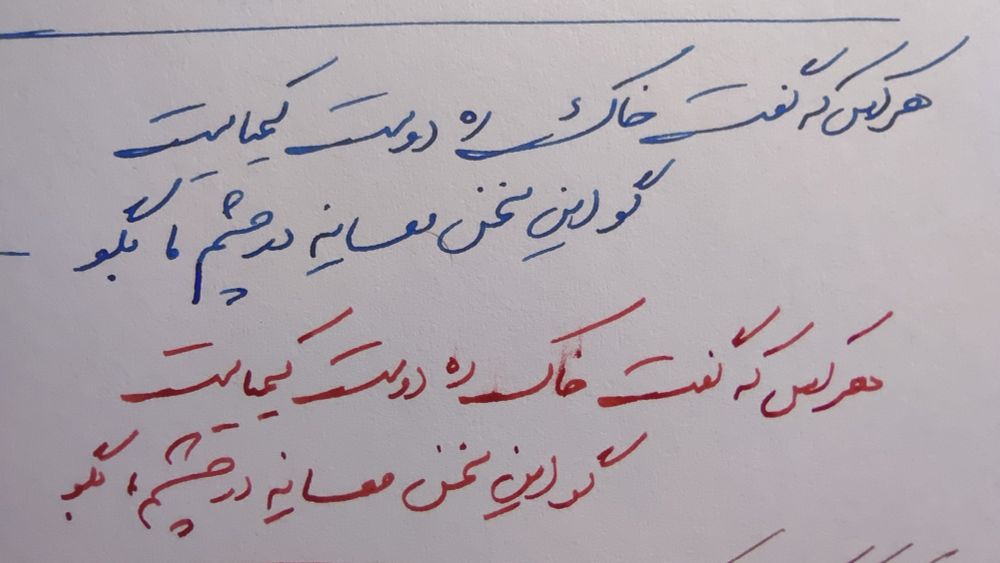 هر کس که گفت خاک ره دوست کیمیاست
گو این سخن معاینه در چشم ما بگو
هر کس که گفت خاک ره دوست کیمیاست
گو این سخن معاینه در چشم ما بگو